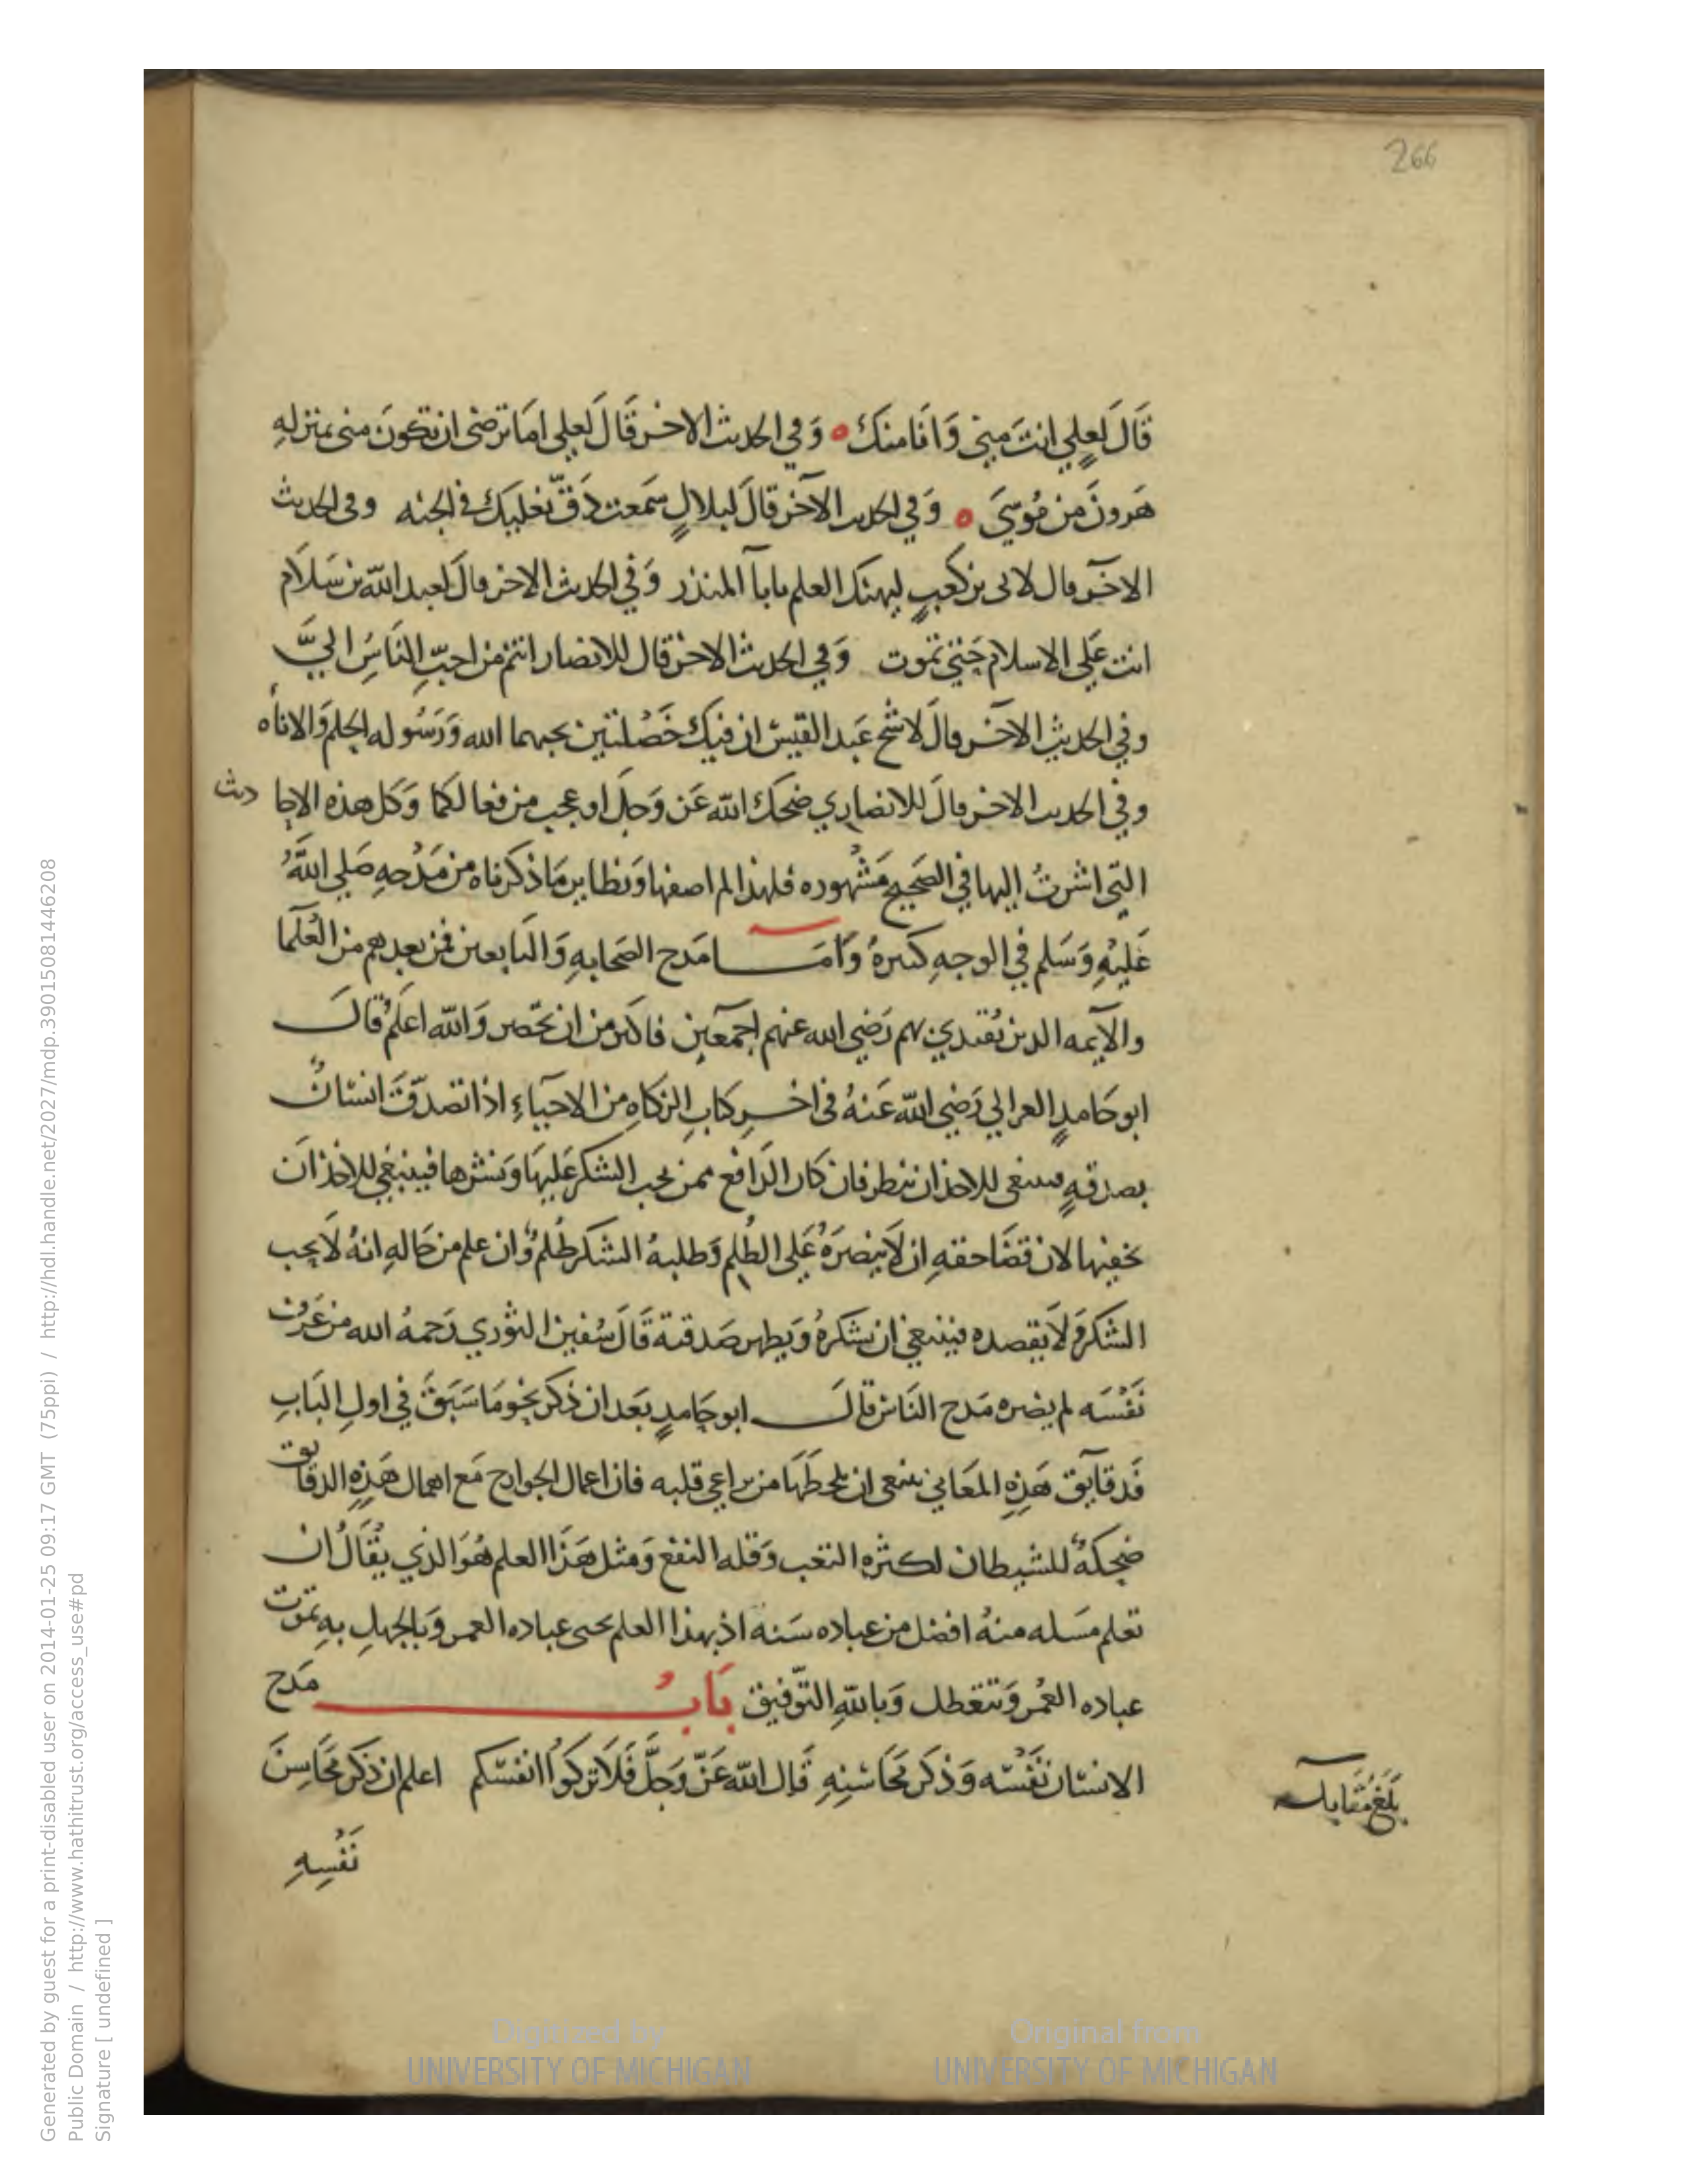 266
قَالَ لعلي انتَ مني وَانَا منكَ ه وَفي الحديث الاخر قَالَ لعلي امَا ترضى ان تكونَ منى بمنزلهِ
هَرونَ من مُوسَي ه وَفي الحديث الآخر قالَ لبلالٍ سَمعت دَقّ نعليك في الجنه وفى الحديث
الاخر قال لابى بن كعبٍ ليهنك العلم يابا المنذر وَفي الحديث الاخر قالَ لعبد الله بن سَلاَم
انت عَلى الاسلام حَتى تموت وَفي الحديث الاخر قال للانصار انتم من احبِّ النَاسِ اليَّ
وفي الحديثِ الآخر قالَ لاشج عَبد القيس ان فيكَ خَصْلتين يحبهما الله وَرَسُوله الحلم وَالاناه
وفي الحديث الاخر قالَ للانصاري ضحك الله عَز وَجلَ او عجب من فعالكما وَكل هذه الاحاديث
التي اشرتُ اليها في الصَحيح مَشْهوره فلهذا لم اصفها وَنظاير مَا ذكرناه من مَدْحهِ صَلى اللهُ
عَليْهِ وَسَلم في الوجهِ كثيرهٌ وَامَــا مَدح الصَحابهِ وَالتابعين فمن بعدهم من العُلَما
والايمه الذين يُقتدي بهم رَضي الله عنهم اجمعَين فاكثر من ان تحصر وَالله اعلَم قالَ
ابو حَامدٍ الغزالي رَضي الله عَنهُ فى اخرِ كتابِ الزكاهِ من الاحيَاءِ اذا تصَدقَ انسَانٌ
بصدقهٍ فينبغى للاخذ ان ينظر فان كان الدَافع ممن يحب الشكر عَليهَا وَنشرها فينبغي للاخذ ان
يخفيها لان قضَا حقهِ ان لاَ ينصرَهُ عَلى الظُلم وَطلبهُ الشكر ظُلمٌ وَان علم من حَالهِ انهُ لاَ يحب
الشكر وَلاَ يقصده فينبغي ان يشكرهُ وَيظهر صَدقتهَ قَالَ سُفين الثوري رَحمهُ الله من عَرف
نَفْسَه لم يضره مَدح النَاس قالَ ابو حَامدٍ بعَد ان ذكر نحو مَا سَبَقَ في اولِ البَابِ
فَدقايق هَذِهِ المَعَاني ينبغى ان يلحظَهَا من يراعي قلبه فان اعمال الجوارح مَع اهمال هَذِهِ الدقايق
ضحكةٌ للشيطان لكثرهِ التعب وَقله النفع وَمثل هَذَا العلم هُوَ الذي يقَالُ ان
تعلم مَسَله منهُ افضل من عباده سَنه اذ بهذا العلم يحيى عباده العمر وَبالجهلِ بهِ تموت
عباده العمُر وَتتعطل وَباللهِ التوّفيق بَابُ مَدح
الانسَان نَفْسَه وَذكر مَحَاسنِهِ قَال الله عَزّ وَجَلَّ فَلاَ تزكوُا انفسَكم اعلم ان ذكر مَحَاسِنَ
نَفْسِهِ
بَلَغ مُقَابله
Generated by guest for a print-disabled user on 2014-01-25 09:17 GMT (75ppi) / http://hdl.handle.net/2027/mdp.39015081446208
Public Domain / http://www.hathitrust.org/access_use#pd
Signature [ undefined ]
Digitized by
UNIVERSITY OF MICHIGAN
Original from
UNIVERSITY OF MICHIGAN